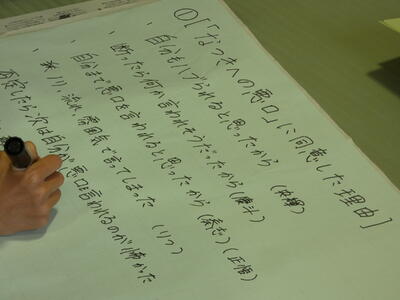 ①[「なつきへの悪口」に同意した理由]
・自分もハブられると思ったから
・断ったら何か言われそうだったから(慶斗)
自分まで悪口を言われると思ったから(泰志)(正悟)
・流れ、雰囲気で言ってしまった (りつ)
否定したら、次は自分が悪口を言われるのが怖かった